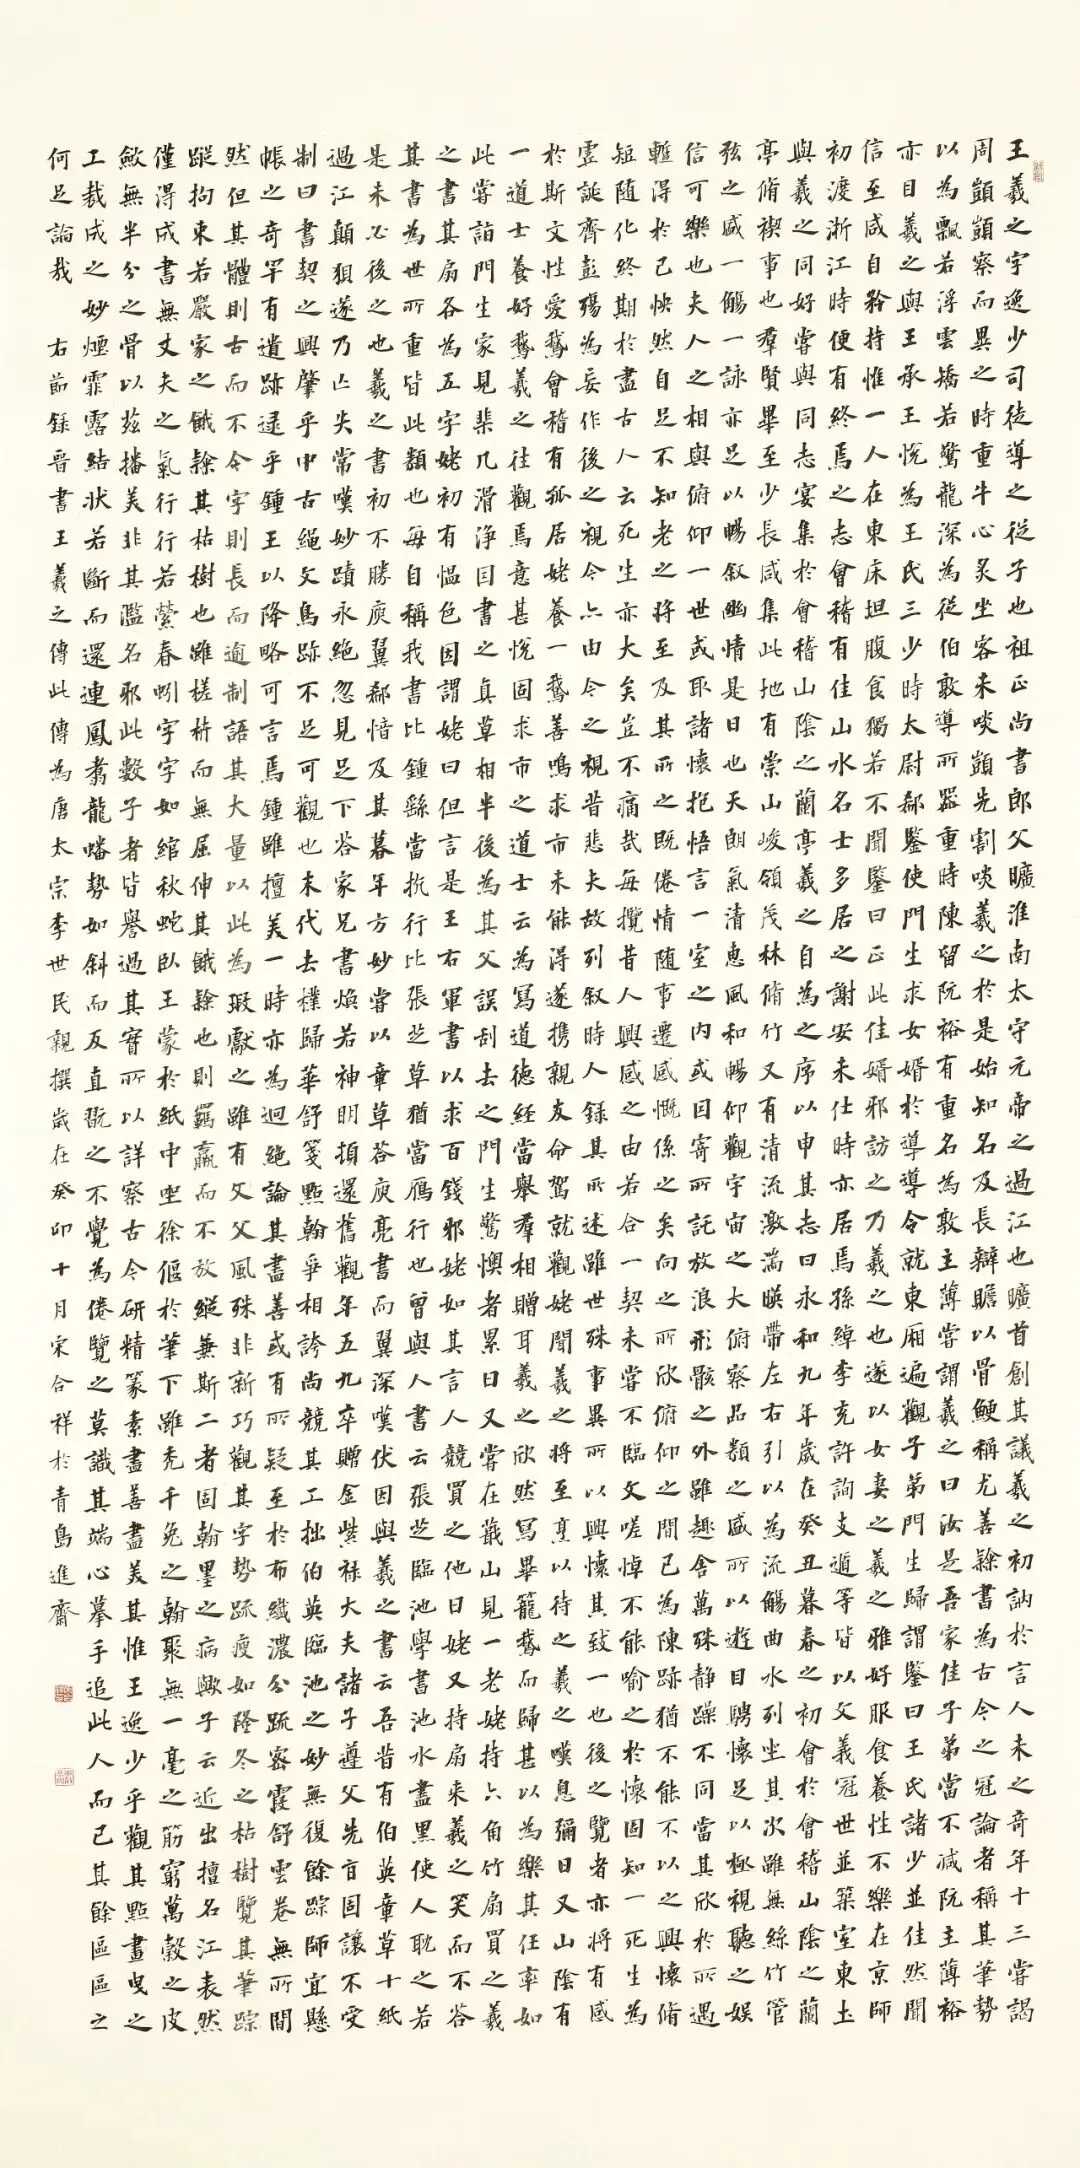 王羲之字逸少司徒導之從子也祖正尚書郎父曠淮南太守元帝之過江也曠首創其議羲之初訥於言人未之奇年十三嘗謁
周顗顗察而異之時重牛心炙坐客未啖顗先割啖羲之於是始知名及長辯贍以骨鯁稱尤善隸書為古今之冠論者稱其筆勢
以為飄若浮雲矯若驚龍深為從伯敦導所器重時陳留阮裕有重名為敦主薄嘗謂羲之曰汝是吾家佳子弟當不減阮主薄裕
亦目羲之與王承王悅為王氏三少時太尉郗鑒使門生求女婿於導導令就東廂遍觀子弟門生歸謂鑒曰王氏諸少並佳然聞
信至咸自矜持惟一人在東床坦腹食獨若不聞鑒曰正此佳婿邪訪之乃羲之也遂以女妻之羲之雅好服食養性不樂在京師
初渡浙江時便有終焉之志會稽有佳山水名士多居之謝安未仕時亦居焉孫綽李充許詢支遁等皆以文義冠世並築室東土
與羲之同好嘗與同志宴集於會稽山陰之蘭亭羲之自為之序以申其志曰永和九年歲在癸丑暮春之初會於會稽山陰之蘭
亭脩禊事也羣賢畢至少長咸集此地有崇山峻領茂林脩竹又有清流激湍暎帶左右引以為流觴曲水列坐其次雖無絲竹管
弦之盛一觴一詠亦足以暢叙幽情是日也天朗氣清惠風和暢仰觀宇宙之大俯察品類之盛所以遊目騁懷足以極視聽之娛
信可樂也夫人之相與俯仰一世或取諸懷抱悟言一室之内或因寄所託放浪形骸之外雖趣舍萬殊静躁不同當其欣於所遇
蹔得於己怏然自足不知老之將至及其所之既倦情随事遷感慨係之矣向之所欣俯仰之間已為陳跡猶不能不以之興懷脩
短随化終期於盡古人云死生亦大矣豈不痛哉每攬昔人興感之由若合一契未嘗不臨文嗟悼不能喻之於懷固知一死生為
虛誕齊彭殤為妄作後之視今亦由今之視昔悲夫故列叙時人錄其所述雖世殊事異所以興懷其致一也後之覽者亦將有感
於斯文性愛鵝會稽有孤居姥養一鵝善鳴求市未能得遂携親友命駕就觀姥聞羲之將至烹以待之羲之嘆息彌日又山陰有
一道士養好鵝羲之往觀焉意甚悅固求市之道士云為寫道德經當舉羣相贈耳羲之欣然寫畢籠鵝而歸甚以為樂其任率如
此嘗詣門生家見棐几滑淨因書之真草相半後為其父誤刮去之門生驚懊者累日又嘗在蕺山見一老姥持六角竹扇買之羲
之書其扇各為五字姥初有愠色因謂姥曰但言是王右軍書以求百錢邪姥如其言人競買之他日姥又持扇来羲之笑而不荅
其書為世所重皆此類也每自稱我書比鍾繇當抗行比張芝草猶當鴈行也曾與人書云張芝臨池學書池水盡黑使人耽之若
是未必後之也羲之書初不勝庾翼郗愔及其暮年方妙嘗以章草荅庾亮書而翼深嘆伏因與羲之書云吾昔有伯英章草十紙
過江顛狽遂乃亡失常嘆妙蹟永絕忽見足下荅家兄書煥若神明頓還舊觀年五九卒贈金紫祿大夫諸子遵父先旨固讓不受
制曰書契之興肇乎中古繩文鳥跡不足可觀也末代去樸歸華舒箋點翰爭相誇尚競其工拙伯英臨池之妙無復餘踪師宜懸
帳之奇罕有遺跡逮乎鍾王以降略可言焉鍾雖擅美一時亦為迥絕論其盡善或有所疑至於布纖濃分疏密霞舒雲卷無所間
然但其體則古而不今字則長而逾制語其大量以此為瑕獻之雖有父父風殊非新巧觀其字勢疏瘦如隆冬之枯樹覽其筆踪
蹤拘束若嚴家之餓隸其枯樹也雖槎枿而無屈伸其餓隸也則羈羸而不放縱兼斯二者固翰墨之病歟子云近出擅名江表然
僅得成書無丈夫之氣行行若縈春蚓字字如綰秋蛇臥王蒙於紙中坐徐偃於筆下雖禿千兔之翰聚無一毫之筋窮萬穀之皮
斂無半分之骨以茲播美非其濫名邪此數子者皆譽過其實所以詳察古今研精篆素盡善盡美其惟王逸少乎觀其點畫曳之
工裁成之妙煙霏露結状若斷而還連鳳翥龍蟠勢如斜而反直翫之不覺為倦覽之莫識其端心摹手追此人而已其餘區區之
何足論哉 右節錄晉書王羲之傳此傳為唐太宗李世民親撰歲在癸卯十月宋合祥於青島進齋